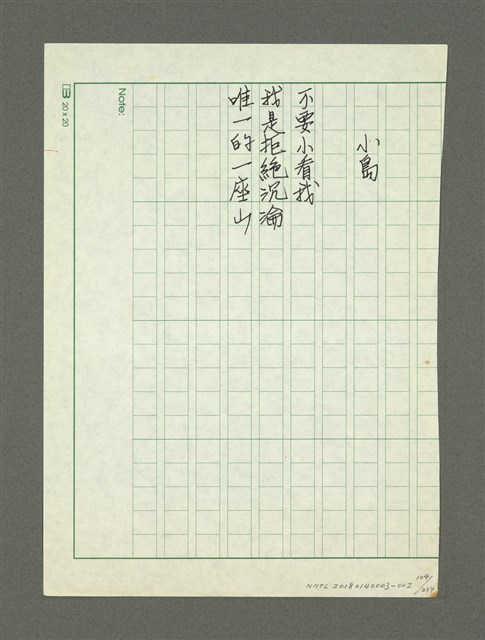 小島
不要小看我
我是拒絕沉淪
唯一的一座山
Note:
20 x 20
NMTL 20180140003-002
104/234